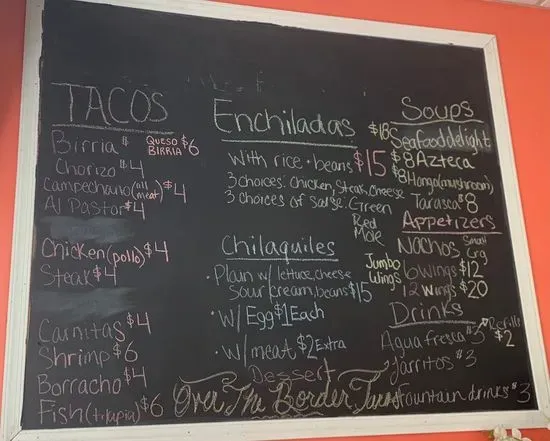 TACOS
Birria $ QUESO BIRRIA $6
Chorizo $4
Campechano (all meat) $4
Al Pastor $4
Chicken (pollo) $4
Steak $4
Carnitas $4
Shrimp $6
Borracho $4
Fish (tilapia) $6
Enchiladas
With rice · beans $15
3 choices: Chicken, Steak, Cheese
3 choices of Salsa: Green
Red
Mole
Chilaquiles
· Plain w/ lettuce, cheese
Sour cream, beans $15
· W/ Egg $1 Each
· W/ meat $2 Extra
Dessert
Over The Border Tacos
Soups
$18 Seafood delight
$8 Azteca
$8 Hongo (mushroom)
Tarasca $8
Appetizers
Nachos Small Lrg
Jumbo Wings 6 Wings $12
12 Wings $20
Drinks
Agua fresca $3 Refills $2
Jarritos $3
Fountain drinks $3